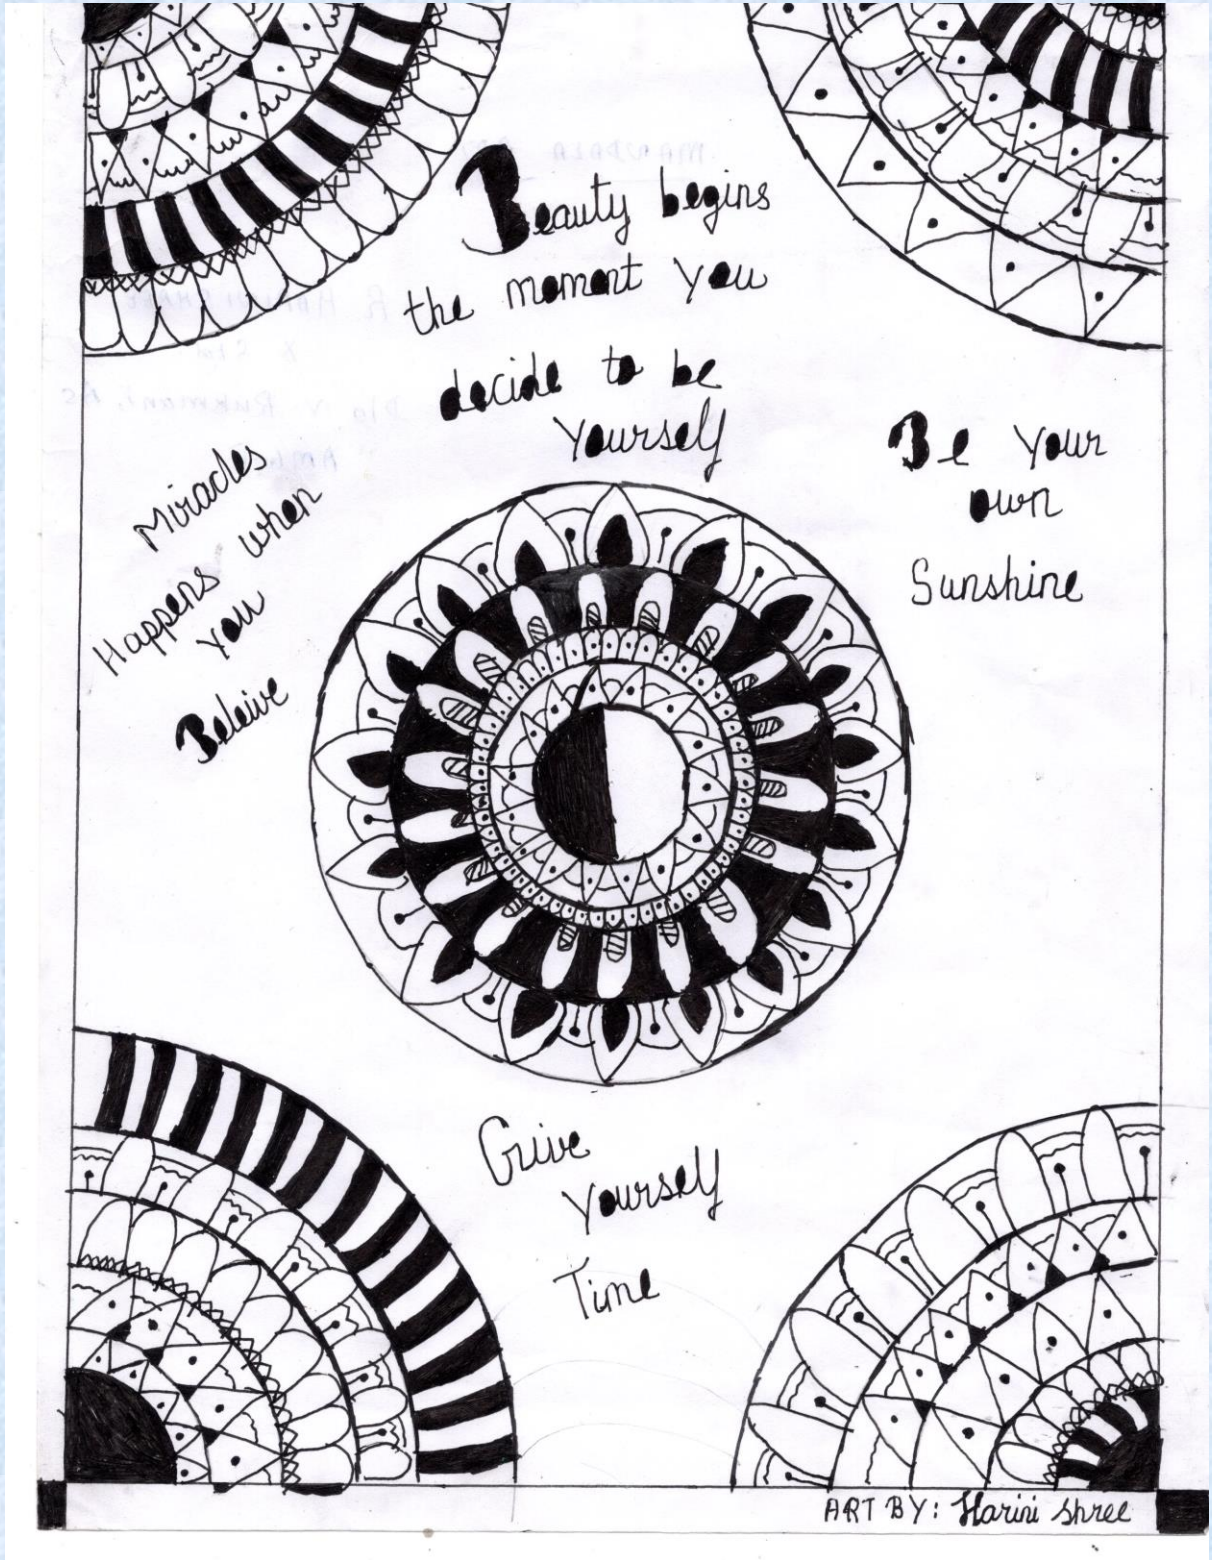 Beauty begins
the moment you
decide to be
Yourself
Miracles
Happens when
you
Beleive
Be Your
own
Sunshine
Give
Yourself
Time
ART BY: Harini Shree